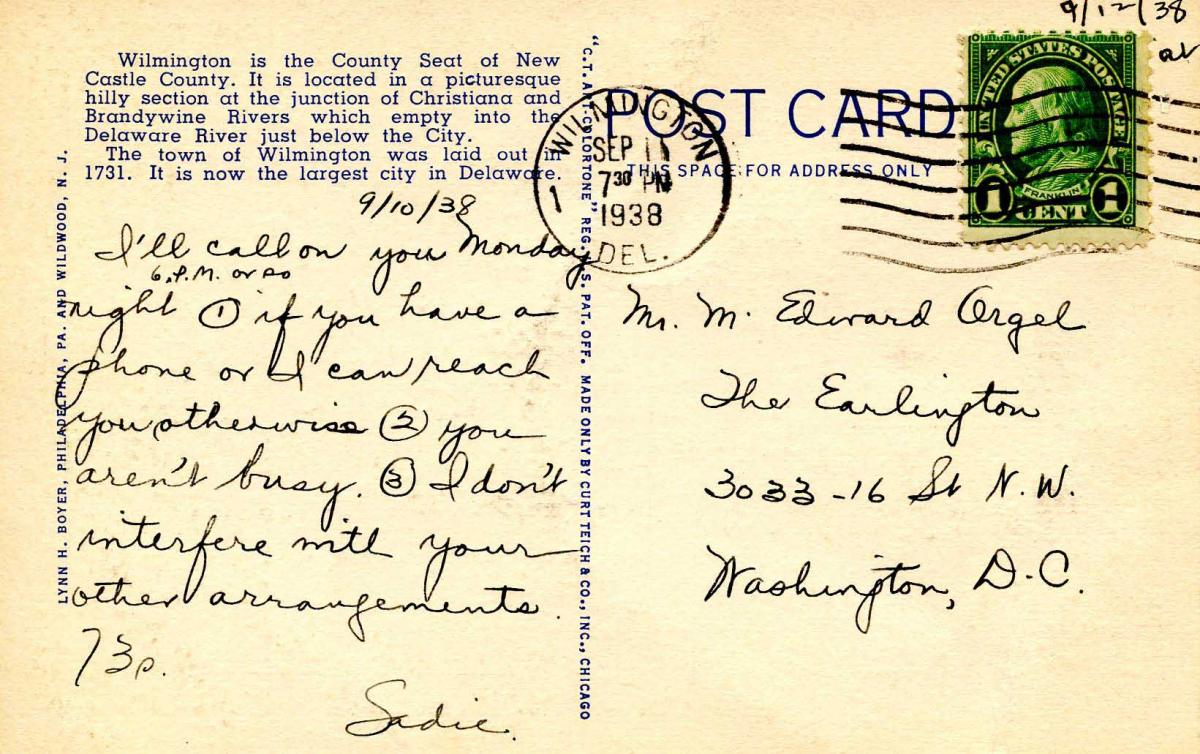 9/12/38
Wilmington is the County Seat of New
Castle County. It is located in a picturesque
hilly section at the junction of Christiana and
Brandywine Rivers which empty into the
Delaware River just below the City.
The town of Wilmington was laid out in
1731. It is now the largest city in Delaware.
9/10/38
I'll call on you Monday
6 P.M. or so
night ① if you have a
phone or I can reach
you otherwise ② you
aren't busy. ③ I don't
interfere with your
other arrangements.
73s.
Sadie.
LYNN H. BOYER, PHILADELPHIA, PA. AND WILDWOOD, N. J.
"C.T. ART-COLORTONE" REG. U.S. PAT. OFF. MADE ONLY BY CURT TEICH & CO., INC., CHICAGO
POST CARD
THIS SPACE FOR ADDRESS ONLY
WILMINGTON
SEP 11
7 30 PM
1938
1
DEL.
UNITED STATES POSTAGE
FRANKLIN
1 CENT 1
Mr. M. Edward Orgel
The Earlington
3033-16 St N.W.
Washington, D.C.